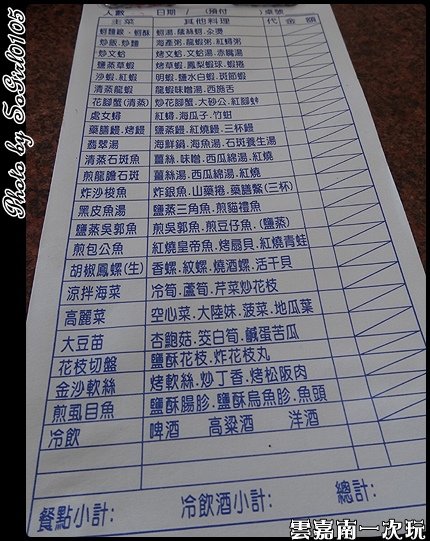 人數　日期 / (預付　)桌號
主菜　其他料理　代 金 額
蚵麵線.蚵酥　蚵湯.蘿絲蚵.全燙
炒飯.炒麵　海產粥.龍蝦粥.紅蟳粥
炒文蛤　烤文蛤.文蛤湯.赤嘴湯
鹽蒸草蝦　烤草蝦.鳳梨蝦球.蝦捲
沙蝦.紅蝦　明蝦.鹽水白蝦.斑節蝦
清蒸龍蝦　龍蝦味噌湯.西施舌
花腳蟹(清蒸)　炒花腳蟹.大砂公.紅腳蚌
處女蟳　紅蟳.海瓜子.竹蚶
藥膳鰻.烤鰻　鹽蒸鰻.紅燒鰻.三杯鰻
翡翠湯　海鮮鍋.海魚湯.石斑養生湯
清蒸石斑魚　薑絲.味噌.西瓜綿湯.紅燒
煎龍膽石斑　薑絲湯.西瓜綿湯.紅燒
炸沙梭魚　炸銀魚.山藥捲.藥膳鱉(三杯)
黑皮魚湯　鹽蒸三角魚.煎貓禮魚
鹽蒸吳郭魚　煎吳郭魚.煎豆仔魚.(鹽蒸)
煎包公魚　紅燒皇帝魚.烤扇貝.紅燒青蛙
胡椒鳳螺(生)　香螺.紋螺.燒酒螺.活干貝
涼拌海菜　冷筍.蘆筍.芹菜炒花枝
高麗菜　空心菜.大陸妹.菠菜.地瓜葉
大豆苗　杏鮑菇.筊白筍.鹹蛋苦瓜
花枝切盤　鹽酥花枝.炸花枝丸
金沙軟絲　烤軟絲.炒丁香.烤松阪肉
煎虱目魚　鹽酥腸胗.鹽酥烏魚胗.魚頭
冷飲　啤酒　高粱酒　洋酒
餐點小計:　冷飲酒小計:　總計:
Photo by SoGid0105
雲嘉南一次玩